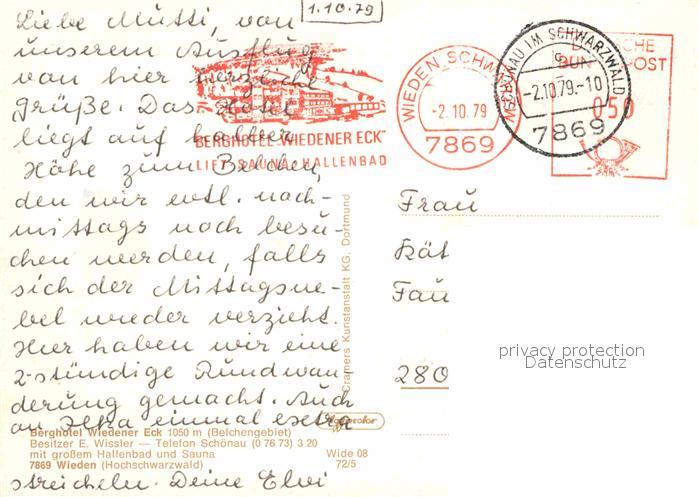 1.10.79
Liebe Mutti, von
unserem Ausflug
von hier herzliche
Grüße. Das Hotel
liegt auf halber
Höhe zum Belchen,
den wir evtl. nach-
mittags noch besu-
chen werden, falls
sich der Mittagsne-
bel wieder verzieht.
Hier haben wir eine
2-stündige Rundwan-
derung gemacht. Auch
an Ilka einmal extra
streicheln. Deine Elvi
BERGHOTEL "WIEDENER ECK"
LIFT · SAUNA · HALLENBAD
WIEDEN, SCHWARZW
-2.10.79
7869
SCHÖNAU IM SCHWARZWALD
c
-2.10.79.-10
7869
DEUTSCHE
BUNDESPOST
050
Frau
Kät
Fau
280
privacy protection
Datenschutz
Cramers Kunstanstalt KG, Dortmund
Berghotel Wiedener Eck 1050 m (Belchengebiet)
Besitzer E. Wissler — Telefon Schönau (0 76 73) 3 20
mit großem Hallenbad und Sauna
7869 Wieden (Hochschwarzwald)
Wide 08
72/5